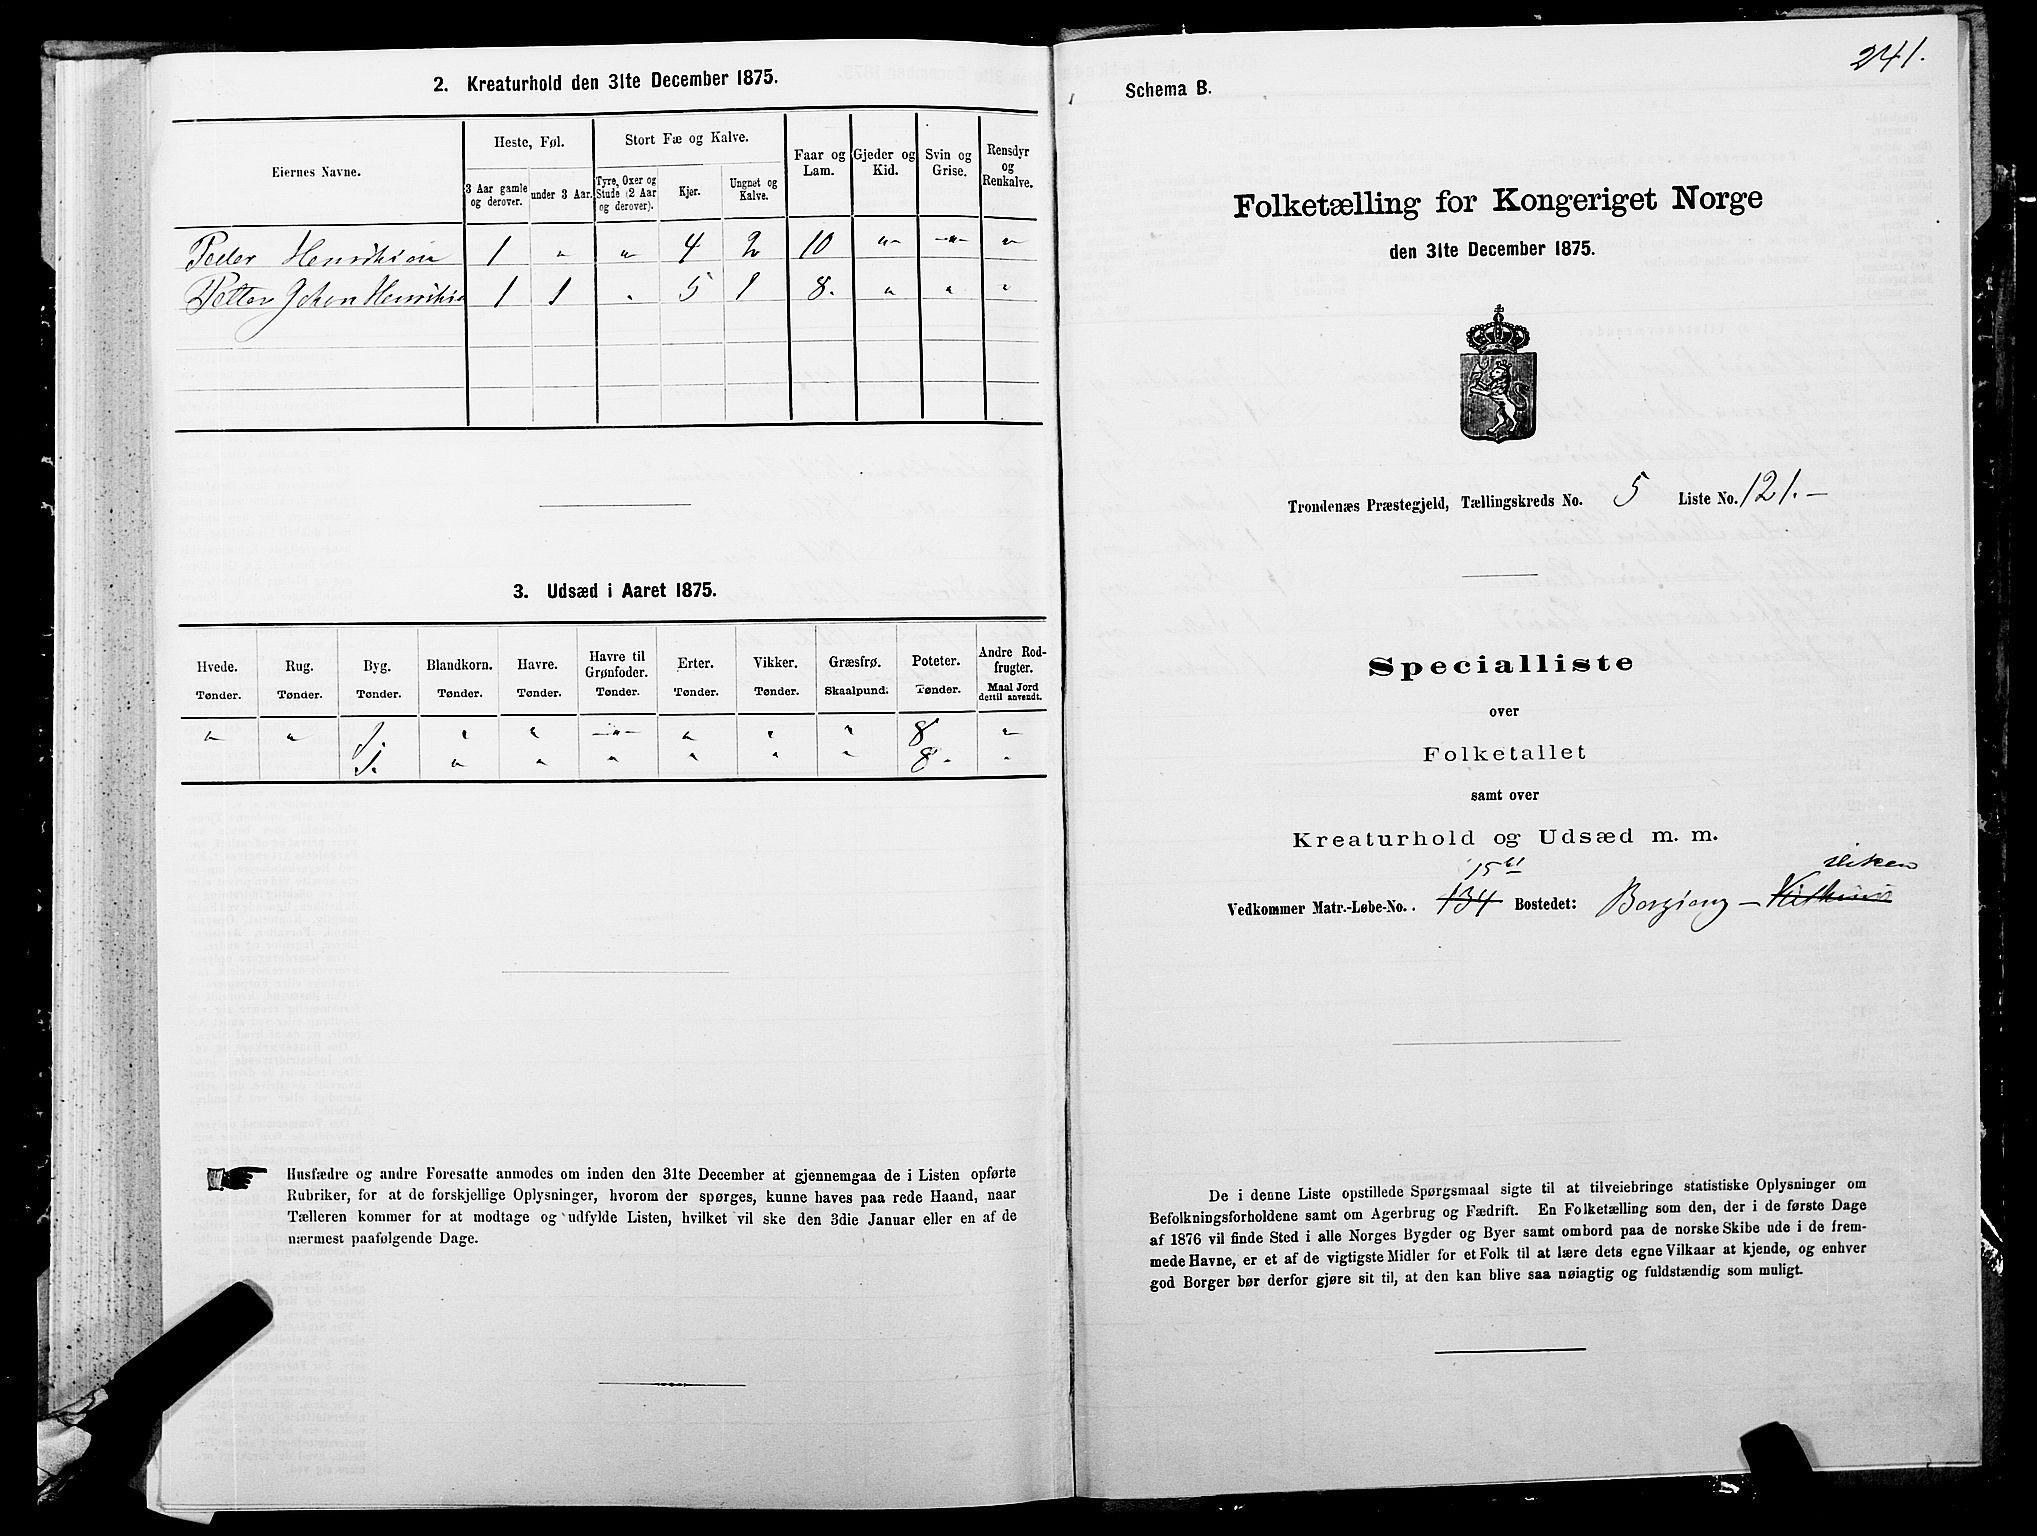 2. Kreaturhold den 31te December 1875.
Eiernes Navne.
Heste, Føl.
3 Aar gamle og derover.
under 3 Aar.
Stort Fæ og Kalve.
Tyre, Oxer og Stude (2 Aar og derover).
Kjør.
Ungnøt og Kalve.
Faar og Lam.
Gjeder og Kid.
Svin og Grise.
Rensdyr og Renkalve.
Peder Henriksen 1 " " 4 2 10 " " "
Petter Johan Henrikse 1 1 " 5 1 8. " " "
3. Udsæd i Aaret 1875.
Hvede. Tønder.
Rug. Tønder.
Byg. Tønder.
Blandkorn. Tønder.
Havre. Tønder.
Havre til Grønfoder. Tønder.
Erter. Tønder.
Vikker. Tønder.
Græsfrø. Skaalpund.
Poteter. Tønder.
Andre Rodfrugter. Maal Jord dertil anvendt.
" " 1. " " " " " " 8 "
1. " " " " " " 8. "
Husfædre og andre Foresatte anmodes om inden den 31te December at gjennemgaa de i Listen opførte
Rubriker, for at de forskjellige Oplysninger, hvorom der spørges, kunne haves paa rede Haand, naar
Tælleren kommer for at modtage og udfylde Listen, hvilket vil ske den 3die Januar eller en af de
nærmest paafølgende Dage.
241.
Schema B.
Folketælling for Kongeriget Norge
den 31te December 1875.
Trondenæs Præstegjeld, Tællingskreds No. 5 Liste No. 121.
Specialliste
over
Folketallet
samt over
Kreaturhold og Udsæd m. m.
Vedkommer Matr.-Løbe-No. 134 Bostedet:
De i denne Liste opstillede Spørgsmaal sigte til at tilveiebringe statistiske Oplysninger om
Befolkningsforholdene samt om Agerbrug og Fædrift. En Folketælling som den, der i de første Dage
af 1876 vil finde Sted i alle Norges Bygder og Byer samt ombord paa de norske Skibe ude i de frem-
mede Havne, er et af de vigtigste Midler for et Folk til at lære dets egne Vilkaar at kjende, og enhver
god Borger bør derfor gjøre sit til, at den kan blive saa nøiagtig og fuldstændig som muligt.